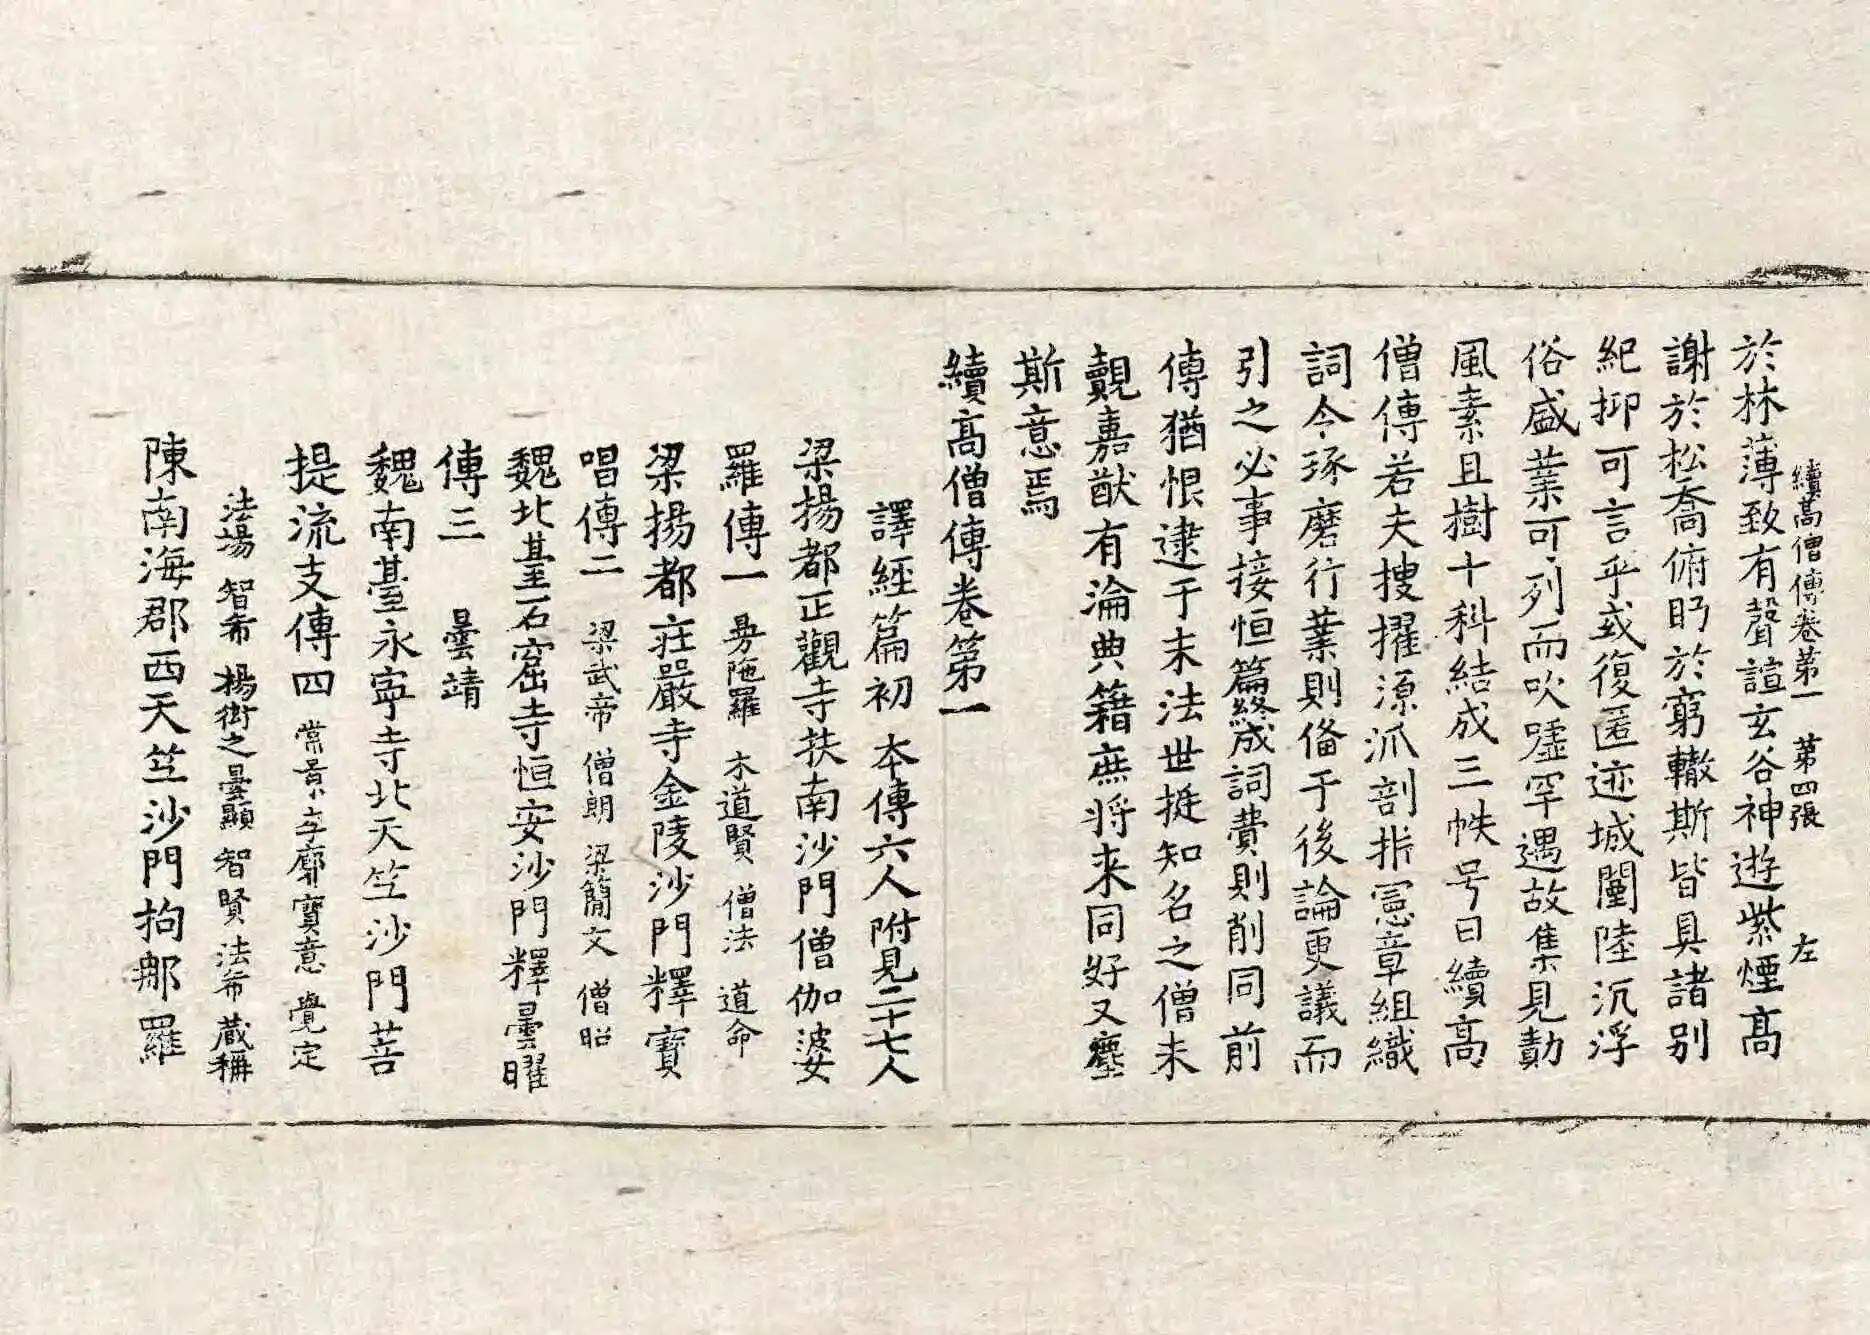 續高僧傳卷第一 第四張 左
於林薄致有聲諠玄谷神遊紫煙高
謝於松喬俯眄於窮轍斯皆具諸别
紀抑可言乎或復匿迹城闉陸沉浮
俗盛業可列而吹噓罕遇故集見勣
風素且樹十科結成三帙号曰續高
僧傳若夫搜擢源派剖指憲章組織
詞令琢磨行業則俻于後論更議而
引之必事接恒篇終成詞費則削同前
傳猶恨逮于末法世挺知名之僧未
覿嘉猷有淪典籍庶将来同好又塵
斯意焉
續髙僧傳卷第一
譯經篇初 本傳六人附見二十七人
梁揚都正觀寺扶南沙門僧伽婆
羅傳一 曼陁羅 木道賢 僧法 道命
梁揚都莊嚴寺金陵沙門釋寶
唱傳二 梁武帝 僧朗 梁簡文 僧昭
魏北臺石窟寺恒安沙門釋曇曜
傳三 曇靖
魏南臺永寧寺北天竺沙門菩
提流支傳四 常景 李廓 寶意 覺定
法場 智希 楊衒之 曇顯 智賢 法希 蔵稱
陳南海郡西天竺沙門拘那羅